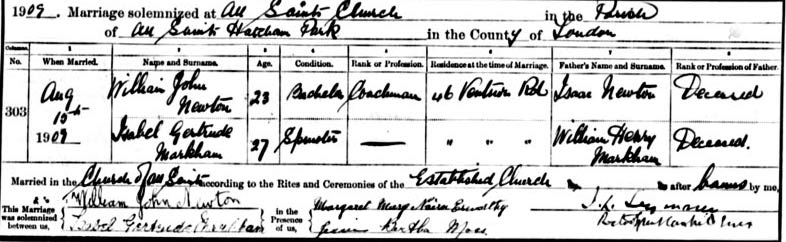 1909. Marriage solemnized at All Saints Church in the Parish
of All Saints Hatcham Park in the County of London
Columns. 1 2 3 4 5 6 7 8
No. When Married. Name and Surname. Age. Condition. Rank or Profession. Residence at the time of Marriage. Father's Name and Surname. Rank or Profession of Father.
303 Aug 15th 1909 William John Newton 23 Bachelor Coachman 46 Rd Isaac Newton Deceased
Isabel Gertrude Markham 27 Spinster — " " " William Henry Markham Deceased.
Married in the Church of All Saints according to the Rites and Ceremonies of the Established Church after banns by me,
This Marriage was solemnized between us, William John Newton
Isabel Gertrude Markham
in the Presence of us, Margaret Mary
Jessie Bertha Moss.